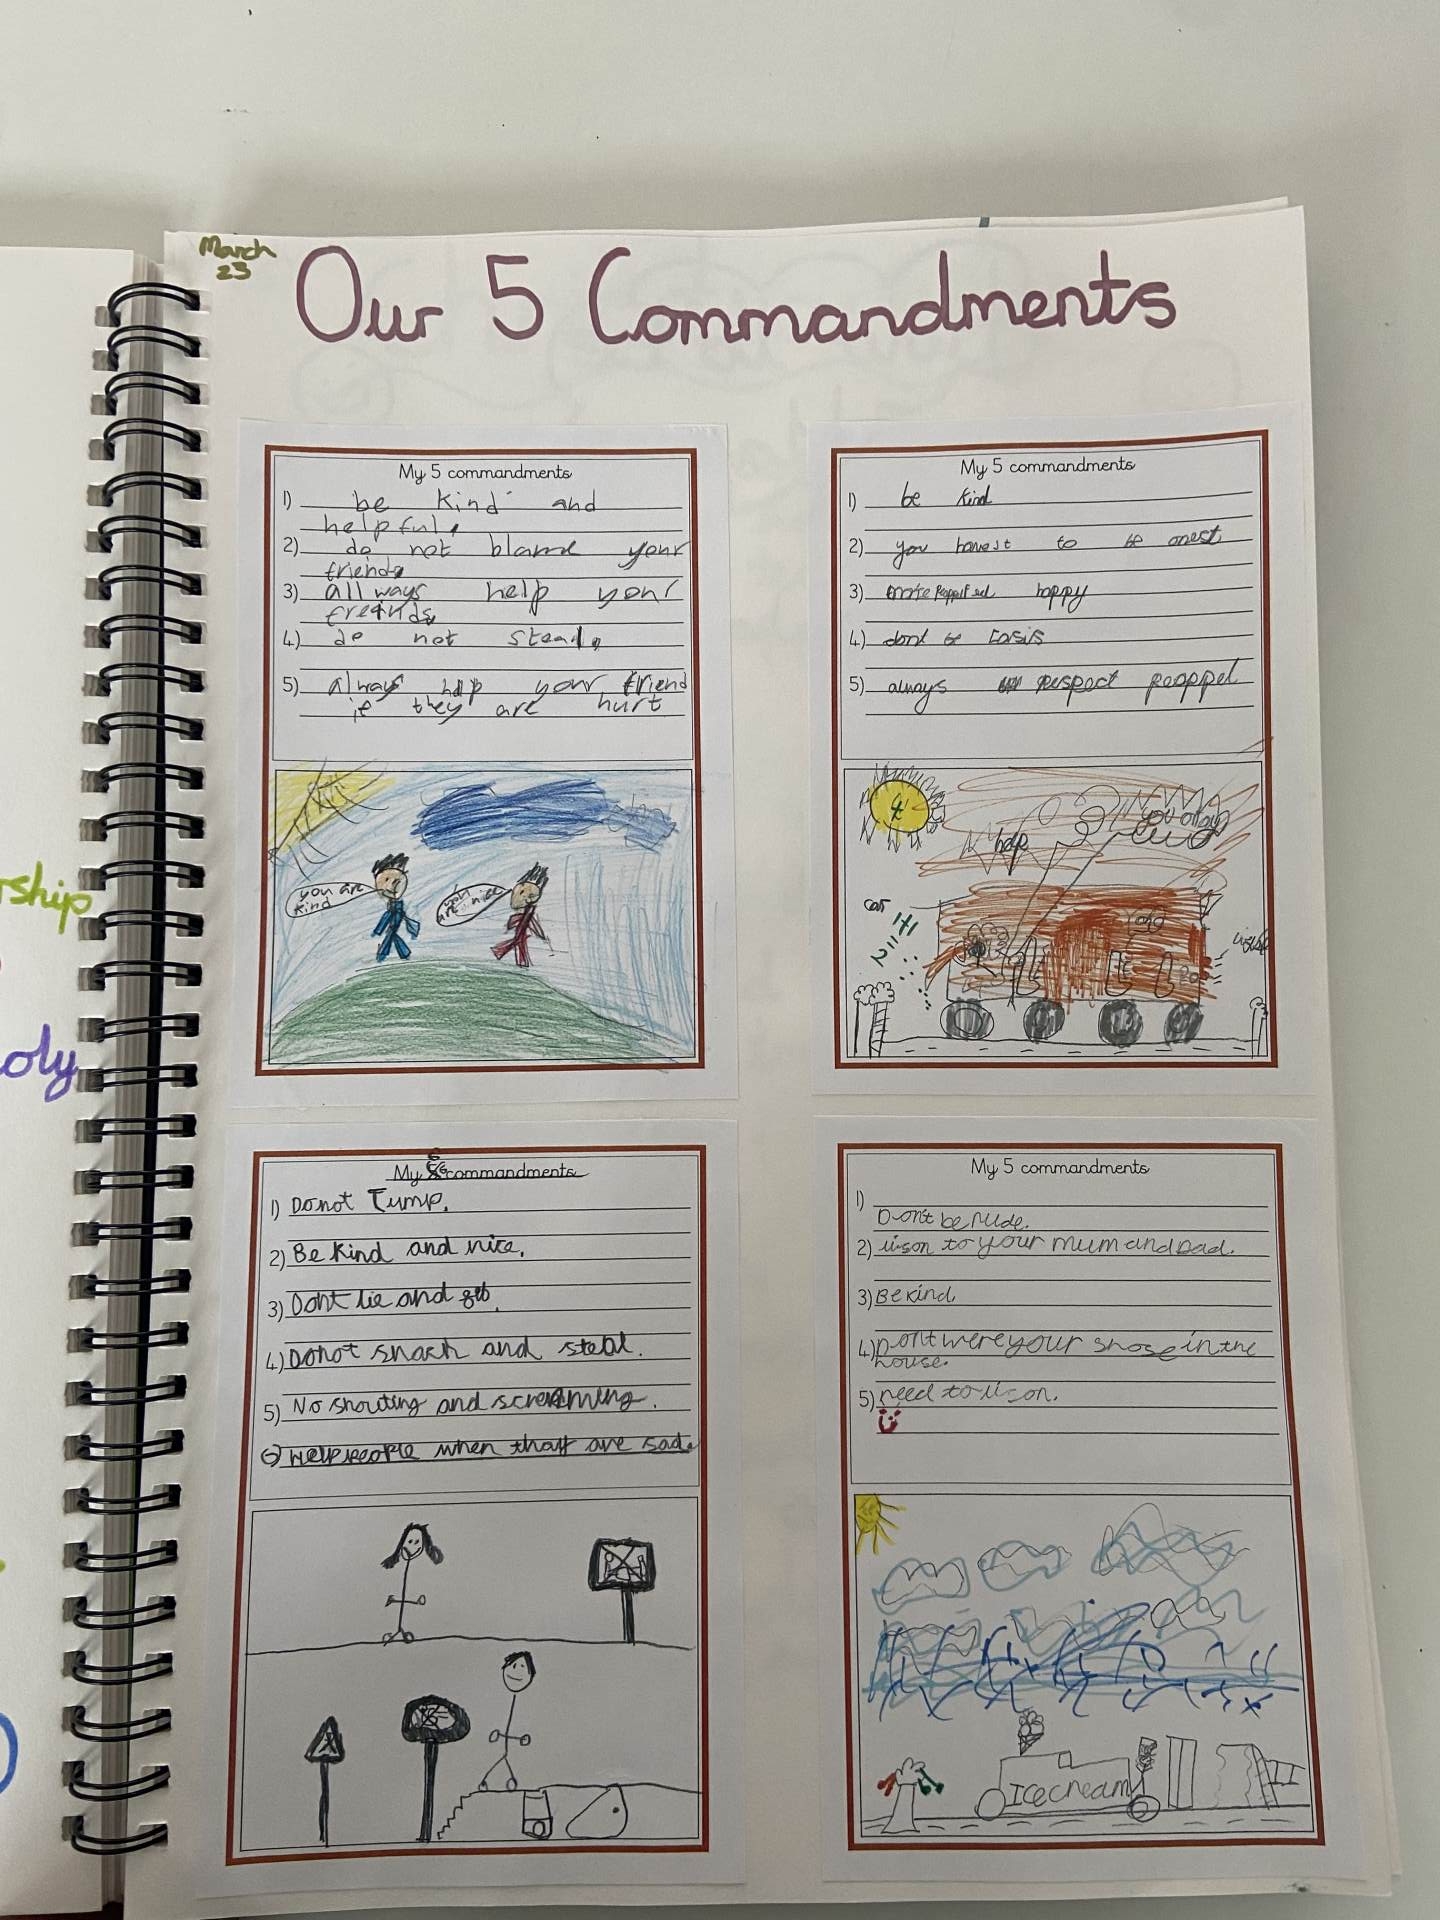 March
23
Our 5 Commandments
My 5 commandments
1) be kind and
helpful.
2) do not blame your
friends
3) allways help your
freinds
4) do not steal.
5) always help your friend
if they are hurt
you are
kind
you
are nice
My 5 commandments
1) be kind
2) you to be onest
3) happy
4) dont be
5) always respect peappel
help
car
1+1
=2
My 6 commandments
1) Do not Tump.
2) Be kind and nice.
3) Dont lie and
4) Do not snach and steal.
5) No shouting and screaming.
6) Help people when thay are sad.
My 5 commandments
1)
Don't be rude.
2) lison to your mum and Dad.
3) Be kind
4) Don't were your shose in the
house.
5) need to lison.
Icecream
ship
oly